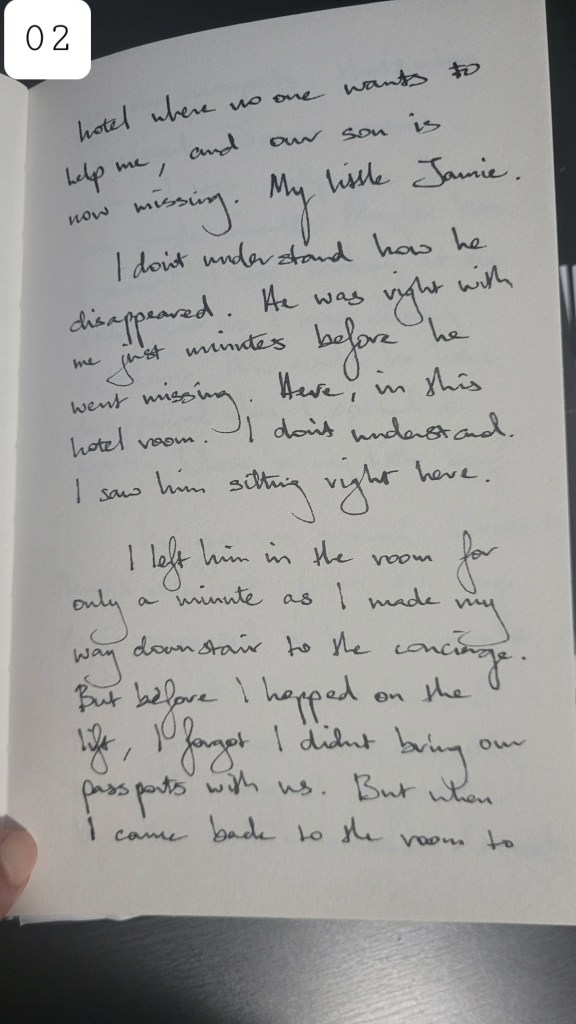 02
hotel where no one wants to
help me, and our son is
now missing. My little Jamie.
I don't understand how he
disappeared. He was right with
me just minutes before he
went missing. Here, in this
hotel room. I don't understand.
I saw him sitting right here.
I left him in the room for
only a minute as I made my
way downstair to the concierge.
But before I hopped on the
lift, I forgot I didn't bring our
passports with us. But when
I came back to the room to